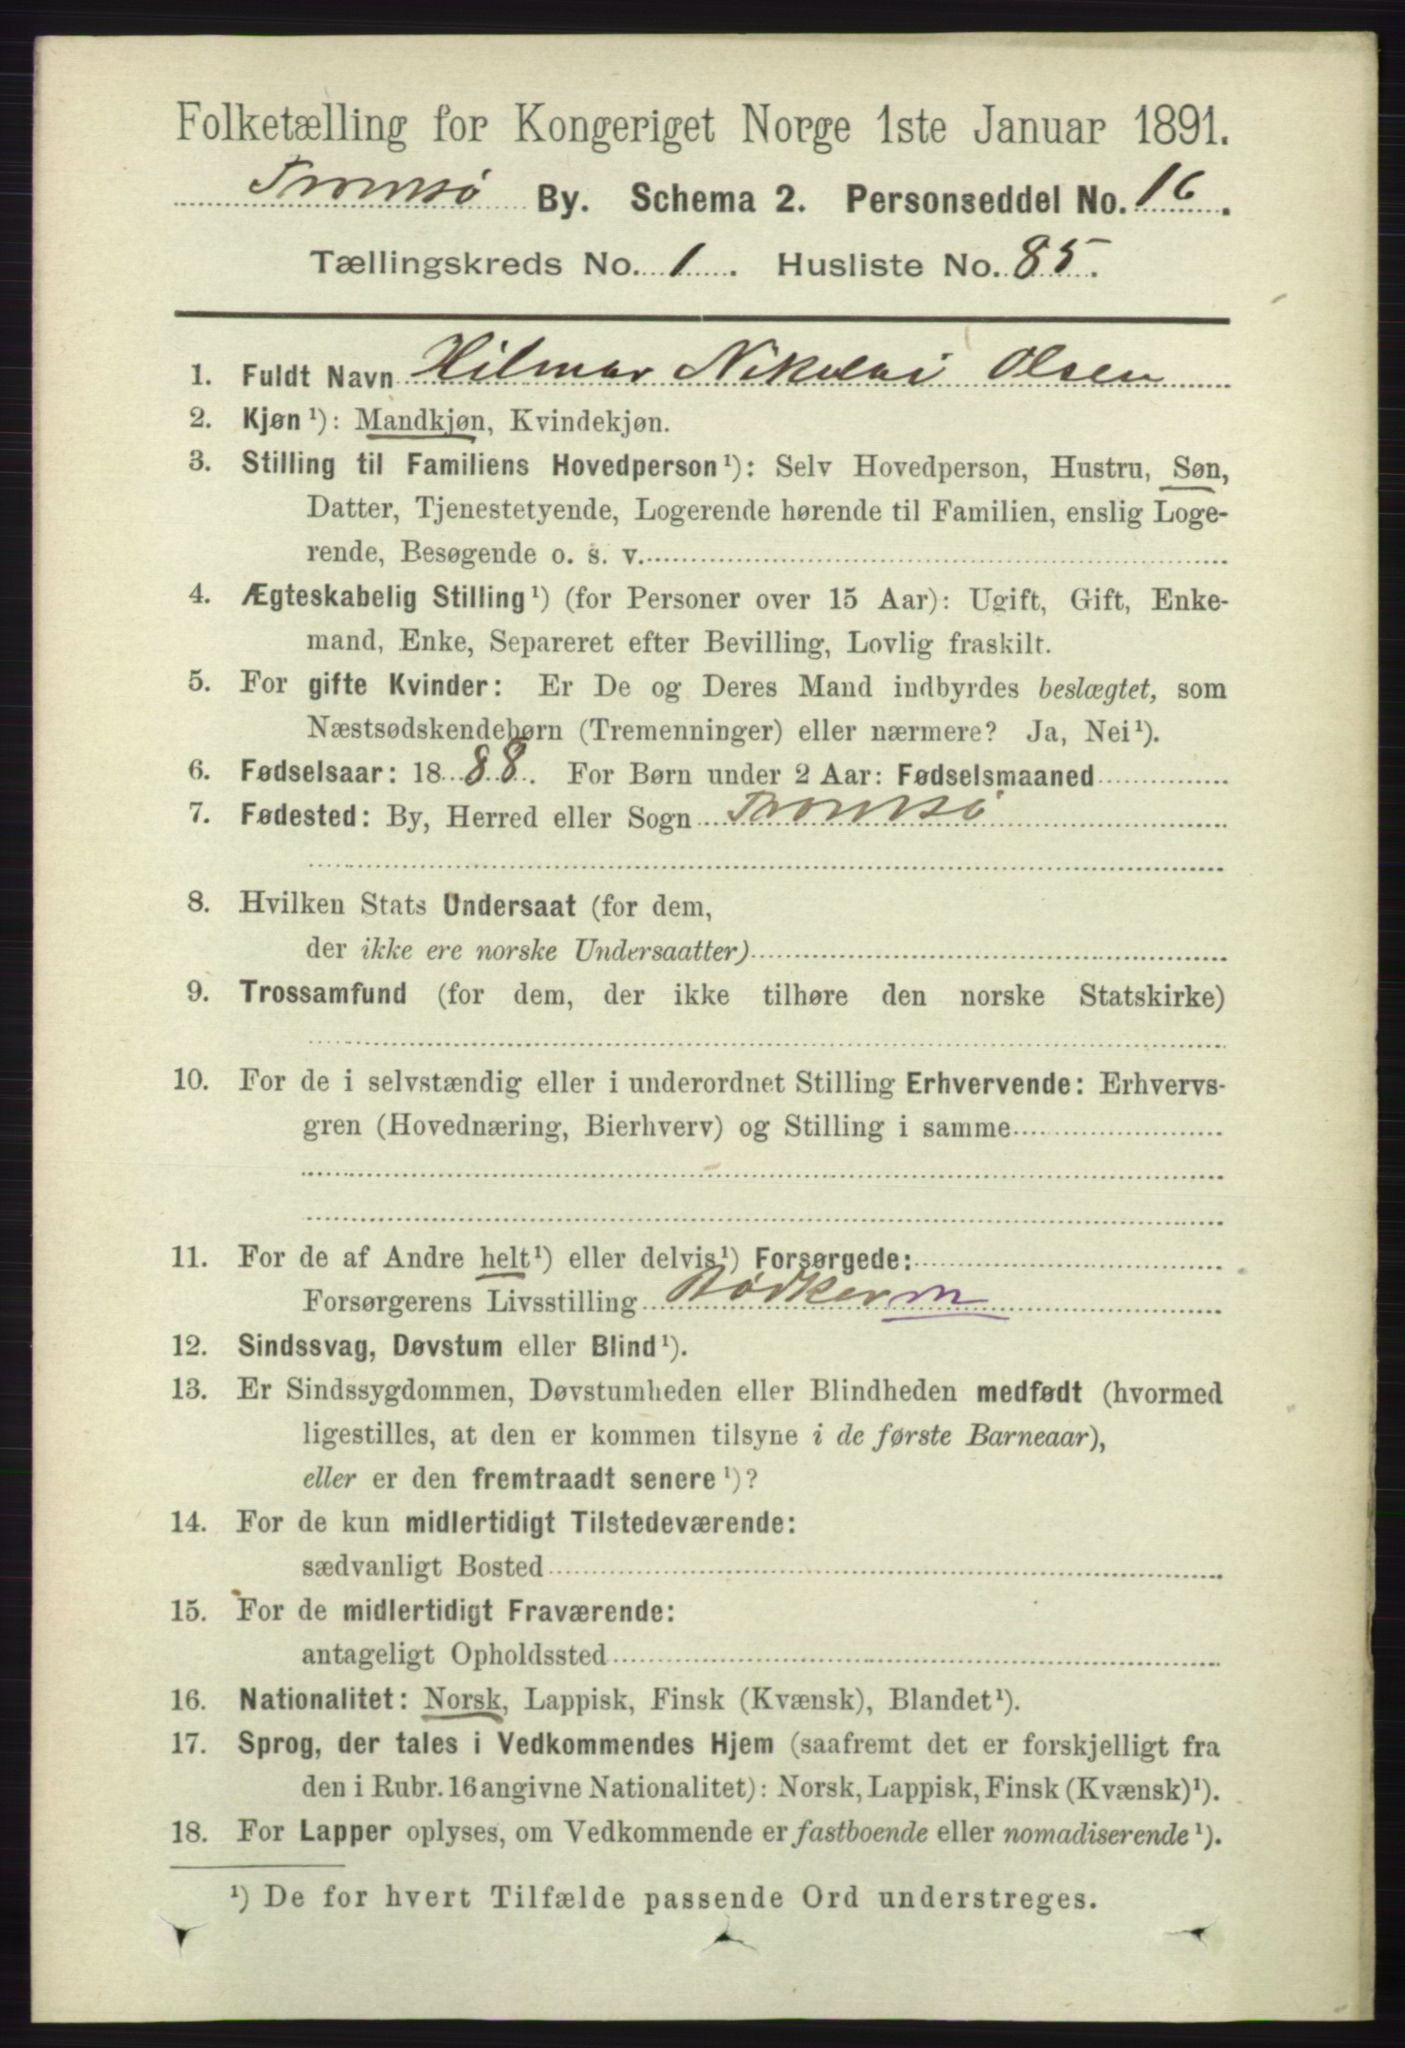 Folketælling for Kongeriget Norge 1ste Januar 1891.
Tromsø By. Schema 2. Personseddel No. 16.
Tællingskreds No. 1. Husliste No. 85.
1. Fuldt Navn Hilmar Nikolai Olsen
2. Kjøn ¹): Mandkjøn, Kvindekjøn.
3. Stilling til Familiens Hovedperson ¹): Selv Hovedperson, Hustru, Søn,
Datter, Tjenestetyende, Logerende hørende til Familien, enslig Loge-
rende, Besøgende o. s. v.
4. Ægteskabelig Stilling ¹) (for Personer over 15 Aar): Ugift, Gift, Enke-
mand, Enke, Separeret efter Bevilling, Lovlig fraskilt.
5. For gifte Kvinder: Er De og Deres Mand indbyrdes beslægtet, som
Næstsødskendebørn (Tremenninger) eller nærmere? Ja, Nei ¹).
6. Fødselsaar: 1888. For Børn under 2 Aar: Fødselsmaaned
7. Fødested: By, Herred eller Sogn Tromsø
8. Hvilken Stats Undersaat (for dem,
der ikke ere norske Undersaatter)
9. Trossamfund (for dem, der ikke tilhøre den norske Statskirke)
10. For de i selvstændig eller i underordnet Stilling Erhvervende: Erhvervs-
gren (Hovednæring, Bierhverv) og Stilling i samme
11. For de af Andre helt ¹) eller delvis ¹) Forsørgede:
Forsørgerens Livsstilling Bødker m
12. Sindssvag, Døvstum eller Blind ¹).
13. Er Sindssygdommen, Døvstumheden eller Blindheden medfødt (hvormed
ligestilles, at den er kommen tilsyne i de første Barneaar),
eller er den fremtraadt senere ¹)?
14. For de kun midlertidigt Tilstedeværende:
sædvanligt Bosted
15. For de midlertidigt Fraværende:
antageligt Opholdssted
16. Nationalitet: Norsk, Lappisk, Finsk (Kvænsk), Blandet ¹).
17. Sprog, der tales i Vedkommendes Hjem (saafremt det er forskjelligt fra
den i Rubr. 16 angivne Nationalitet): Norsk, Lappisk, Finsk (Kvænsk) ¹).
18. For Lapper oplyses, om Vedkommende er fastboende eller nomadiserende ¹).
¹) De for hvert Tilfælde passende Ord understreges.